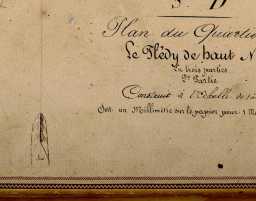 Plan du Quartie
Le Plédy de haut N
En trois parties
2e Partie
Construit à l'Echelle de 1 à
Soit un Millimètre sur le papier pour 1 Mè